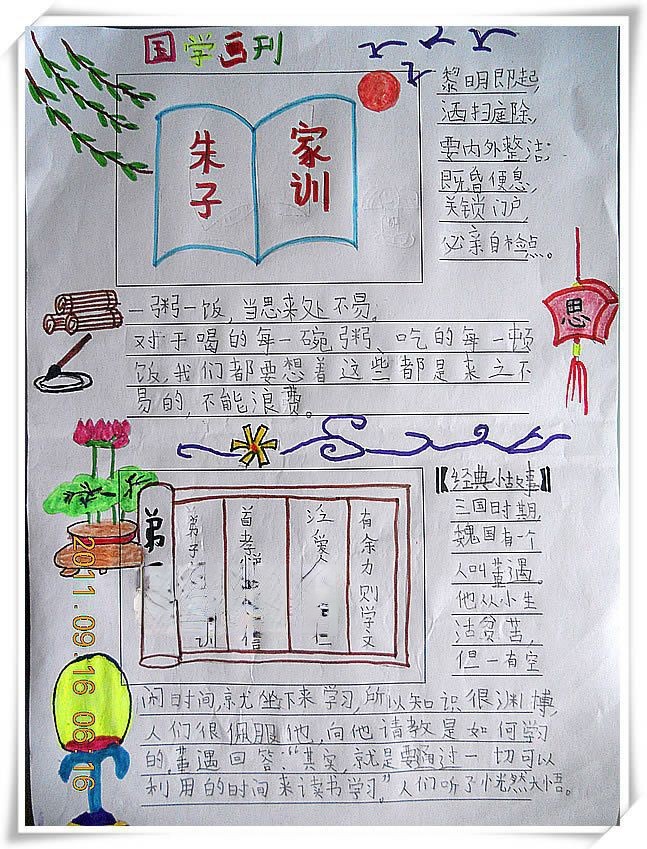 国学画刊
朱子
家训
黎明即起,
洒扫庭除,
要内外整洁;
既昏便息,
关锁门户,
必亲自检点。
思
一粥一饭,当思来处不易。
对于喝的每一碗粥、吃的每一顿
饭,我们都要想着这些都是来之不
易的,不能浪费。
弟
弟子 训
首孝悌 信
泛爱 仁
有余力则学文
【经典小故事】
三国时期,
魏国有一个
人叫董遇
他从小生
活贫苦,
但一有空
闲时间,就坐下来学习,所以知识很渊博,
人们很佩服他,向他请教是如何学习
的,董遇回答:“其实,就是要通过一切可以
利用的时间来读书学习。”人们听了恍然大悟。
2011.09.16 06:16